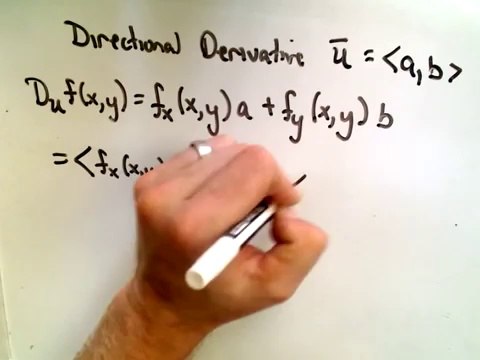 Directional Derivative ū = <a, b>
Duf(x,y) = fx(x,y) a + fy(x,y) b
= <fx(x,y)